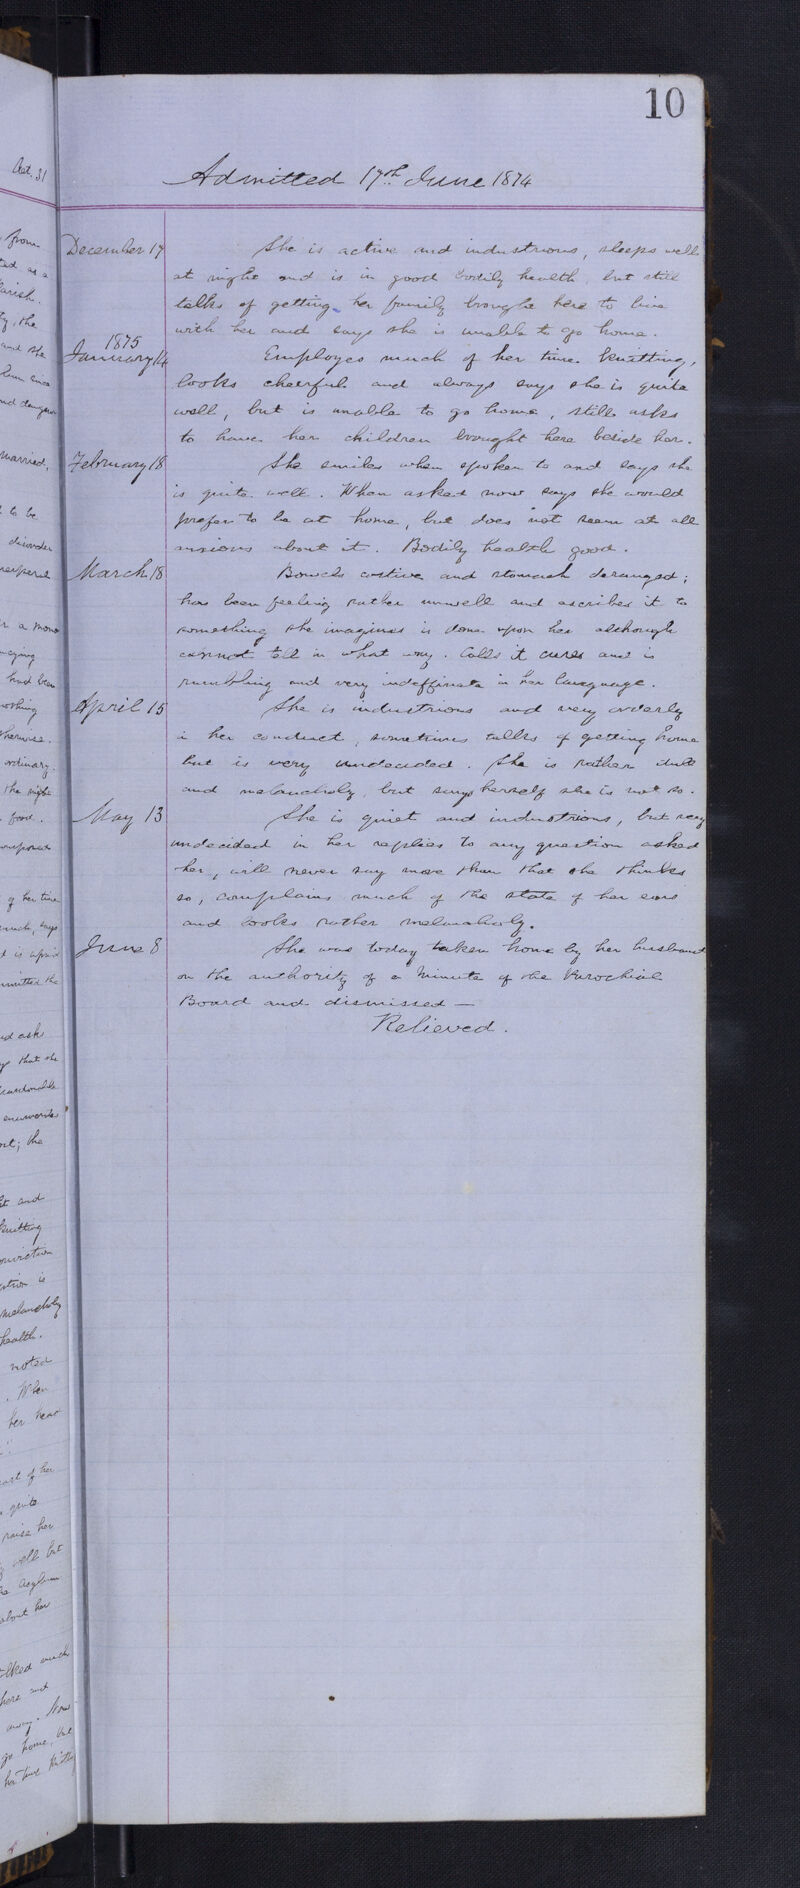 10
Admitted 17th June 1874
December 17 She is active and industrious, sleeps well
at night and is in good bodily health, but still
talks of getting her family brought here to live
with her and says she is unable to go home.
1875
January 14 Employes much of her time knitting,
looks cheerful and always says she is quite
well, but is unable to go home, still asks
to have her children brought here beside her.
February 18 She smiles when spoken to and says she
is quite well. When asked now says she would
prefer to be at home, but does not seem at all
anxious about it. Bodily health good.
March 18 Bowels costive and stomach deranged;
has been feeling rather unwell and ascribes it to
something she imagines is done upon her although
cannot tell in what way. Calls it cures and is
rambling and very indeffinate in her language.
April 15 She is industrious and very orderly
in her conduct, sometimes talks of getting home
but is very undecided. She is rather dull
and melancholy, but says herself she is not so.
May 13 She is quiet and industrious, but very
undecided in her replies to any question asked
her, will never say more than that she thinks
so, complains much of the state of her ears
and looks rather melancholy.
June 8 She was today taken home by her husband
on the authority of a Minute of the Parochial
Board and dismissed —
Relieved.